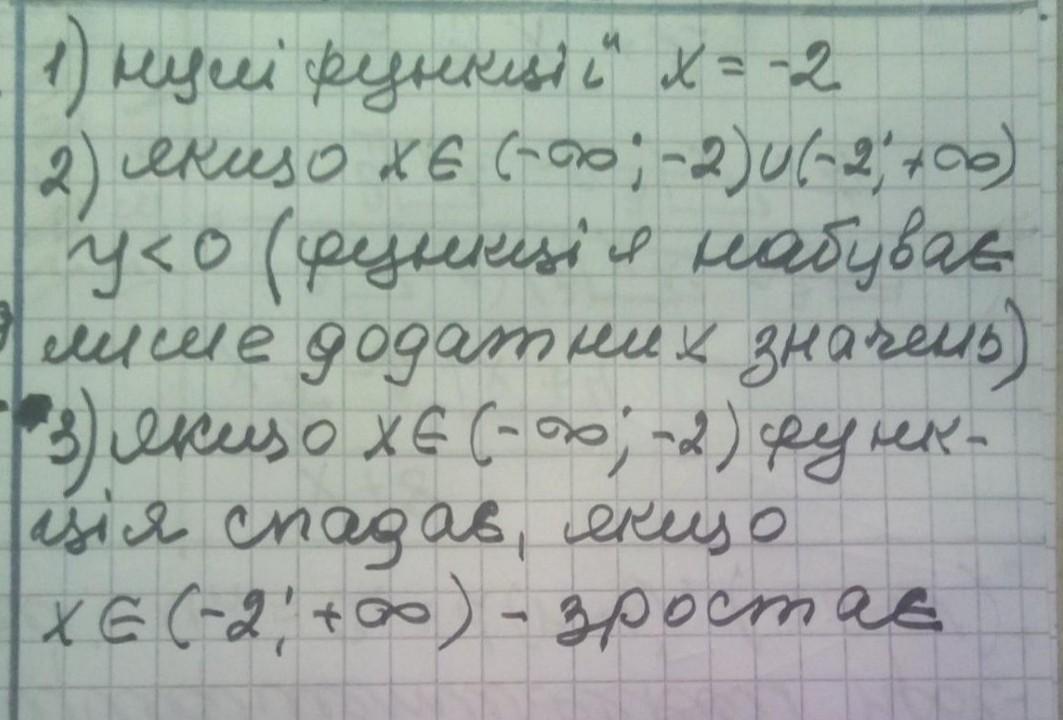 1) нулі функції x = -2
2) якщо x ∈ (-∞; -2) ∪ (-2; +∞)
y < 0 (функція набуває
лише додатних значень)
3) якщо x ∈ (-∞; -2) функ-
ція спадає, якщо
x ∈ (-2; +∞) - зростає